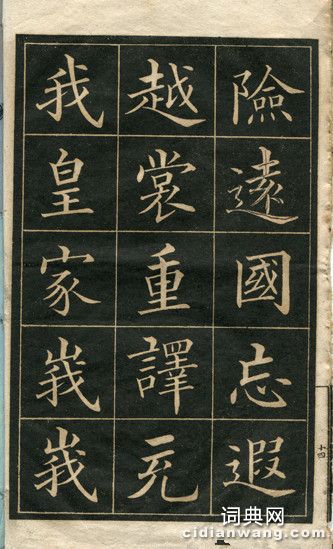 險遠國忘遐
越裳重譯充
我皇家峩峩
十四
词典网
cidianwang.com